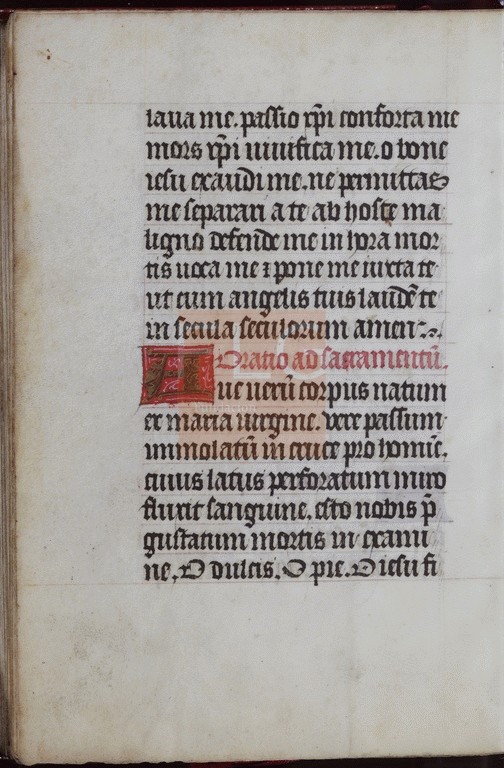 laua me. passio xp̄i conforta me
mors xp̄i uiuifica me. o bone
iesu exaudi me. ne permittas
me separari a te ab hoste ma
ligno defende me in hora mor
tis uoca me ⁊ pone me iuxta te
ut cum angelis tuis laudē te
in secula seculorum amen
Oratio ad sacramentū.
Aue uerū corpus natum
ex maria uirgine. vere passum
immolatū in cruce pro homīe.
cuius latus perforatum miro
fluxit sanguine. esto nobis p̄
gustatum mortis in exami
ne. O dulcis. O pie. O iesu fi